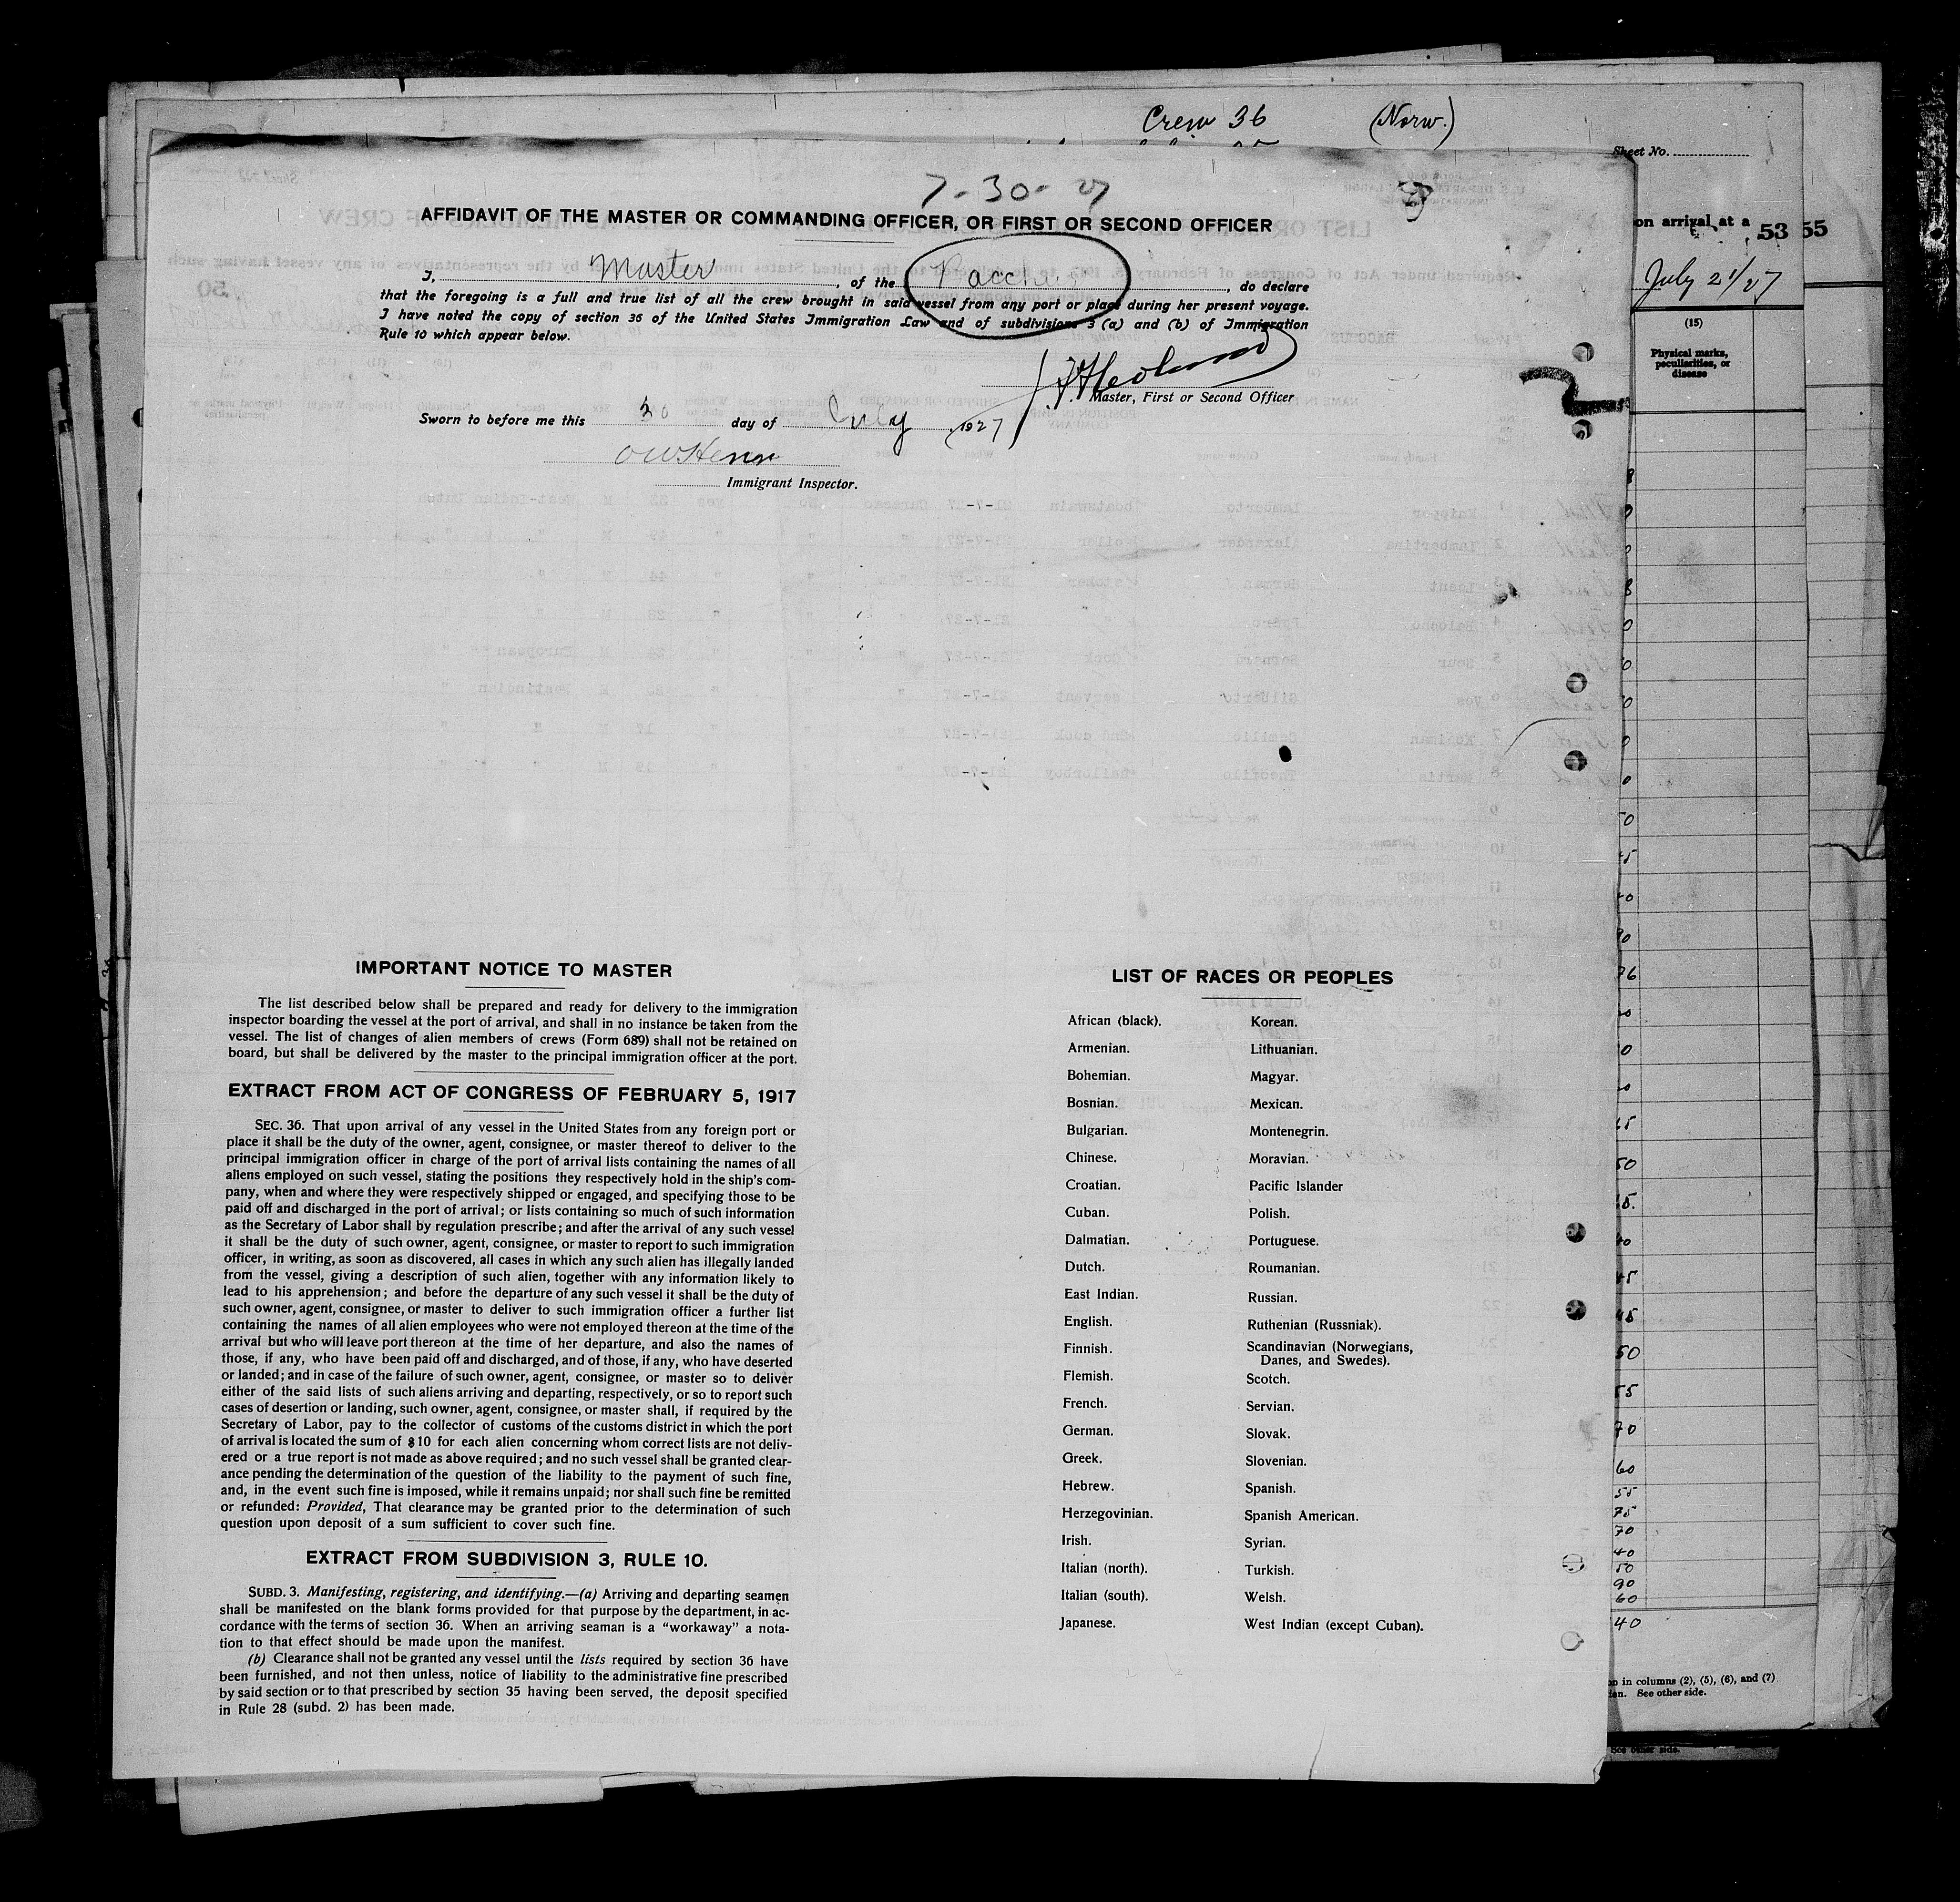 Crew 36 (Norw.)
Sheet No.
7-30-27
AFFIDAVIT OF THE MASTER OR COMMANDING OFFICER, OR FIRST OR SECOND OFFICER
on arrival at a 53 55
July 21/27
I, Master, of the Bacchus, do declare
that the foregoing is a full and true list of all the crew brought in said vessel from any port or place during her present voyage.
I have noted the copy of section 36 of the United States Immigration Law and of subdivisions 3 (a) and (b) of Immigration
Rule 10 which appear below.
(15)
Physical marks,
peculiarities, or
disease
Master, First or Second Officer
Sworn to before me this 30 day of July, 1927
Immigrant Inspector.
IMPORTANT NOTICE TO MASTER
The list described below shall be prepared and ready for delivery to the immigration
inspector boarding the vessel at the port of arrival, and shall in no instance be taken from the
vessel. The list of changes of alien members of crews (Form 689) shall not be retained on
board, but shall be delivered by the master to the principal immigration officer at the port.
EXTRACT FROM ACT OF CONGRESS OF FEBRUARY 5, 1917
SEC. 36. That upon arrival of any vessel in the United States from any foreign port or
place it shall be the duty of the owner, agent, consignee, or master thereof to deliver to the
principal immigration officer in charge of the port of arrival lists containing the names of all
aliens employed on such vessel, stating the positions they respectively hold in the ship's com-
pany, when and where they were respectively shipped or engaged, and specifying those to be
paid off and discharged in the port of arrival; or lists containing so much of such information
as the Secretary of Labor shall by regulation prescribe; and after the arrival of any such vessel
it shall be the duty of such owner, agent, consignee, or master to report to such immigration
officer, in writing, as soon as discovered, all cases in which any such alien has illegally landed
from the vessel, giving a description of such alien, together with any information likely to
lead to his apprehension; and before the departure of any such vessel it shall be the duty of
such owner, agent, consignee, or master to deliver to such immigration officer a further list
containing the names of all alien employees who were not employed thereon at the time of the
arrival but who will leave port thereon at the time of her departure, and also the names of
those, if any, who have been paid off and discharged, and of those, if any, who have deserted
or landed; and in case of the failure of such owner, agent, consignee, or master so to deliver
either of the said lists of such aliens arriving and departing, respectively, or so to report such
cases of desertion or landing, such owner, agent, consignee, or master shall, if required by the
Secretary of Labor, pay to the collector of customs of the customs district in which the port
of arrival is located the sum of $10 for each alien concerning whom correct lists are not deliv-
ered or a true report is not made as above required; and no such vessel shall be granted clear-
ance pending the determination of the question of the liability to the payment of such fine,
and, in the event such fine is imposed, while it remains unpaid; nor shall such fine be remitted
or refunded: Provided, That clearance may be granted prior to the determination of such
question upon deposit of a sum sufficient to cover such fine.
EXTRACT FROM SUBDIVISION 3, RULE 10.
SUBD. 3. Manifesting, registering, and identifying.—(a) Arriving and departing seamen
shall be manifested on the blank forms provided for that purpose by the department, in ac-
cordance with the terms of section 36. When an arriving seaman is a "workaway" a nota-
tion to that effect should be made upon the manifest.
(b) Clearance shall not be granted any vessel until the lists required by section 36 have
been furnished, and not then unless, notice of liability to the administrative fine prescribed
by said section or to that prescribed by section 35 having been served, the deposit specified
in Rule 28 (subd. 2) has been made.
LIST OF RACES OR PEOPLES
African (black). Korean.
Armenian. Lithuanian.
Bohemian. Magyar.
Bosnian. Mexican.
Bulgarian. Montenegrin.
Chinese. Moravian.
Croatian. Pacific Islander
Cuban. Polish.
Dalmatian. Portuguese.
Dutch. Roumanian.
East Indian. Russian.
English. Ruthenian (Russniak).
Finnish. Scandinavian (Norwegians,
Danes, and Swedes).
Flemish. Scotch.
French. Servian.
German. Slovak.
Greek. Slovenian.
Hebrew. Spanish.
Herzegovinian. Spanish American.
Irish. Syrian.
Italian (north). Turkish.
Italian (south). Welsh.
Japanese. West Indian (except Cuban).
50
55
70
60
55
75
70
40
50
90
60
40
in columns (2), (5), (6), and (7)
See other side.
See other side.